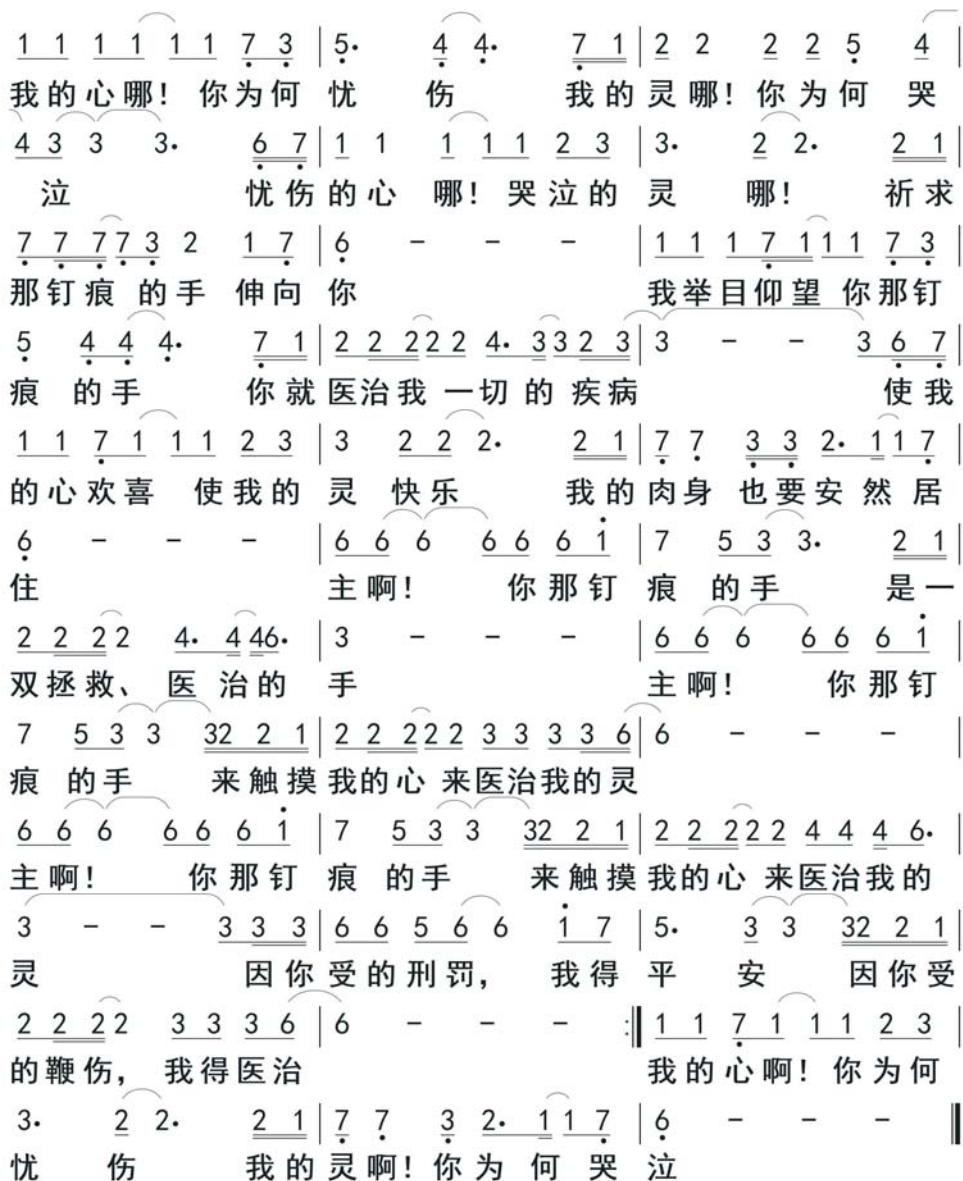 1 1 1 1 1 1 7 3 | 5· 4 4· 7 1 | 2 2 2 2 5 4
我的心哪！你为何 忧 伤 我的 灵哪！你为何 哭
4 3 3 3· 6 7 | 1 1 1 1 1 2 3 | 3· 2 2· 2 1 |
泣 忧伤 的心 哪！哭泣的 灵 哪！ 祈求
7 7 7 7 3 2 1 7 | 6 - - - | 1 1 1 7 1 1 1 7 3 |
那钉痕 的手 伸向 你 我举目仰望 你那钉
5 4 4 4· 7 1 | 2 2 2 2 2 4· 3 3 2 3 | 3 - - 3 6 7 |
痕 的手 你就 医治我 一切 的 疾病 使我
1 1 7 1 1 1 2 3 | 3 2 2 2· 2 1 | 7 7 3 3 2· 1 1 7 |
的心欢喜 使我的 灵 快乐 我的 肉身 也要安 然 居
6 - - - | 6 6 6 6 6 6 1 | 7 5 3 3· 2 1 |
住 主啊！ 你那钉 痕 的手 是一
2 2 2 2 4· 4 4 6· | 3 - - - | 6 6 6 6 6 6 1 |
双拯救、 医 治的 手 主啊！ 你那钉
7 5 3 3 32 2 1 | 2 2 2 2 2 3 3 3 3 6 | 6 - - - |
痕 的手 来触摸 我的心 来医治我的灵
6 6 6 6 6 6 1 | 7 5 3 3 32 2 1 | 2 2 2 2 2 4 4 4 6· |
主啊！ 你那钉 痕 的手 来触摸 我的心 来医治我的
3 - - 3 3 3 | 6 6 5 6 6 1 7 | 5· 3 3 32 2 1 |
灵 因你 受的刑罚， 我得 平 安 因你受
2 2 2 2 3 3 3 6 | 6 - - - :‖ 1 1 7 1 1 1 2 3 |
的鞭伤，我得医治 我的心啊！你为何
3· 2 2· 2 1 | 7 7 3 2· 1 1 7 | 6 - - - ‖
忧 伤 我的 灵啊！你为 何 哭 泣